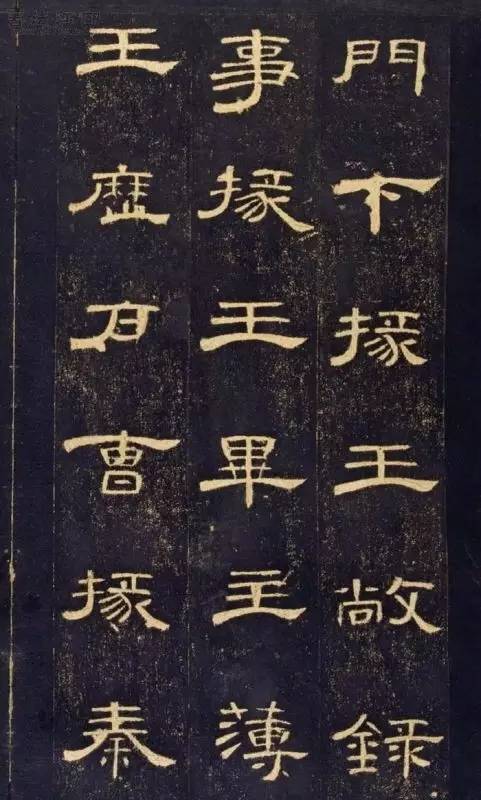 門下掾王敞錄
事掾王畢主薄
王歷戶曹掾秦